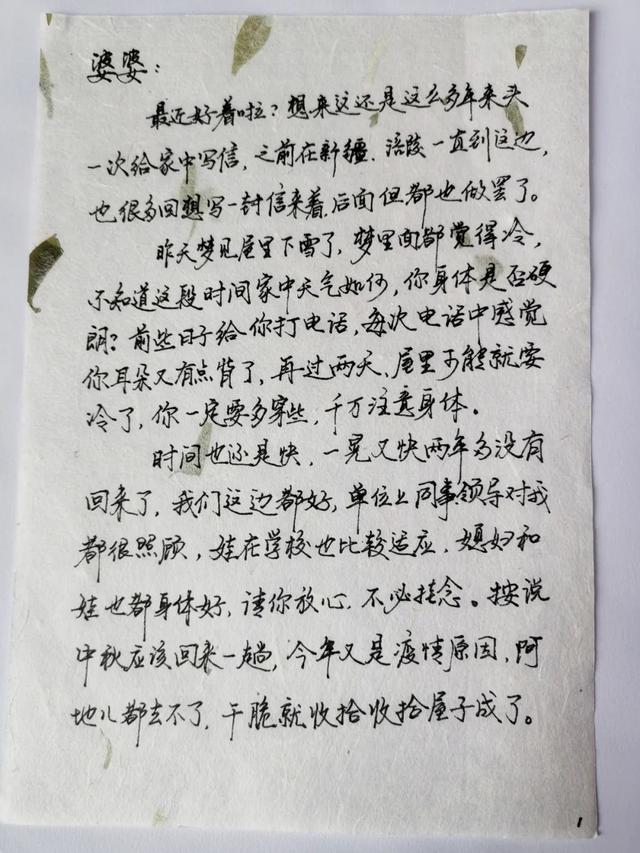 婆婆：
最近好着啦？想来这还是这么多年来头
一次给家中写信，之前在新疆、涪陵一直到这边，
也很多回想写一封信来着，后面但都也做罢了。
昨天梦见屋里下雪了，梦里面都觉得冷，
不知道这段时间家中天气如何，你身体是否硬
朗？前些日子给你打电话，每次电话中感觉
你耳朵又有点背了，再过两天，屋里可能就要
冷了，你一定要多穿些，千万注意身体。
时间也还是快，一晃又快两年多没有
回来了，我们这边都好，单位上同事领导对我
都很照顾，娃在学校也比较适应，媳妇和
娃也都身体好，请你放心，不必挂念。按说
中秋应该回来一趟，今年又是疫情原因，阿
地儿都去不了，干脆就收拾收拾屋子成了。
1